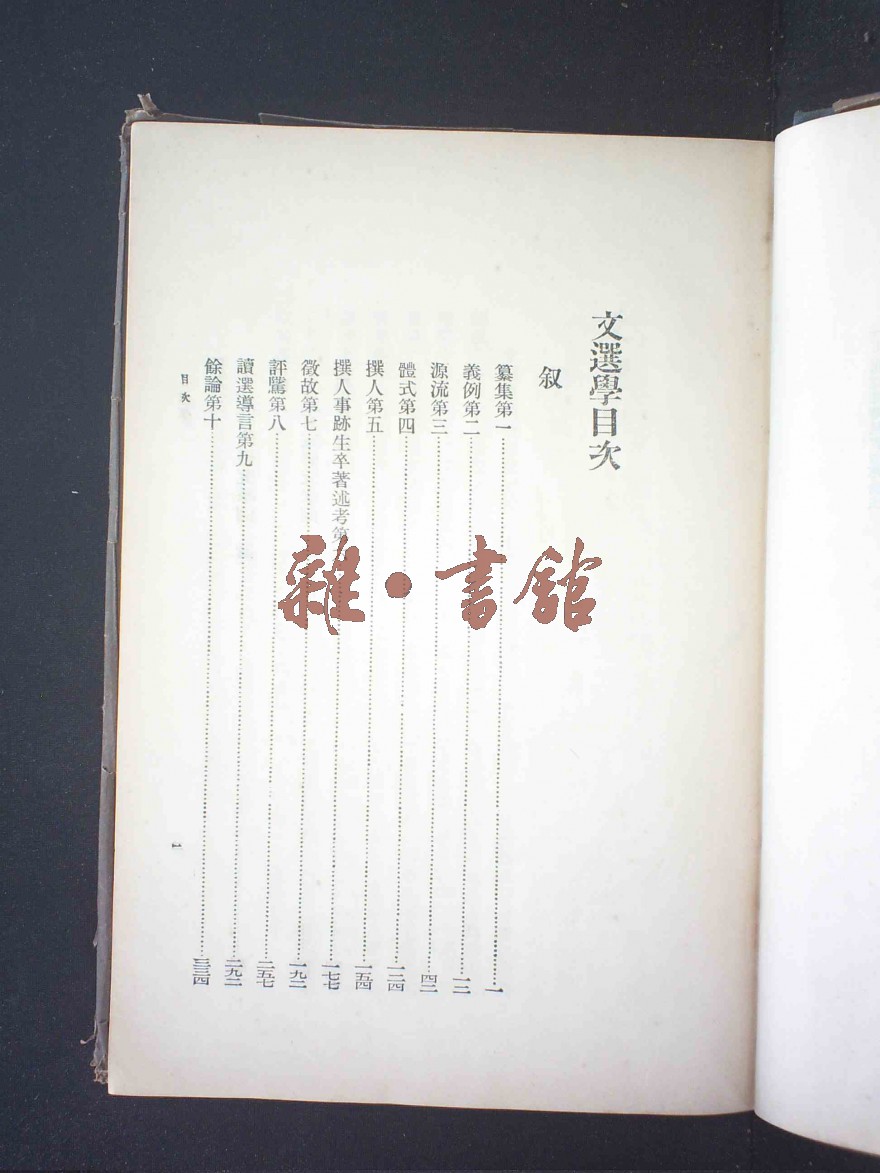 文選學目次
叙
纂集第一……一
義例第二……一二
源流第三……四二
體式第四……一二四
撰人第五……一五四
撰人事跡生卒著述考第……一七七
徵故第七……一九二
評騭第八……二五七
讀選導言第九……二九二
餘論第十……三三四
目次
一
雜·書館